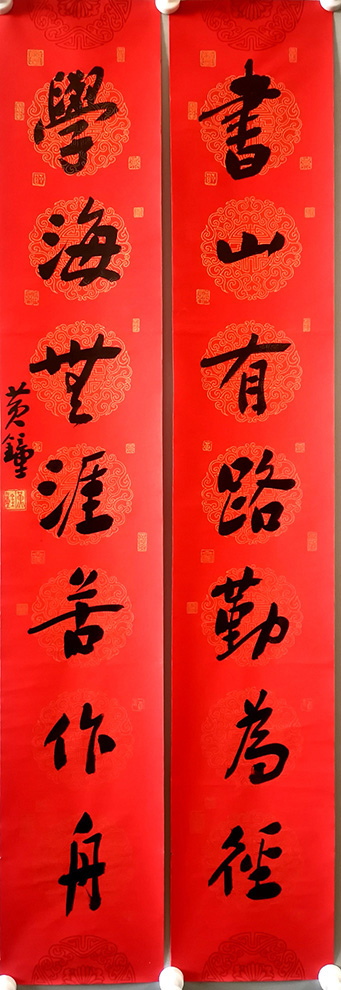 書山有路勤為徑
學海無涯苦作舟
黄鐘